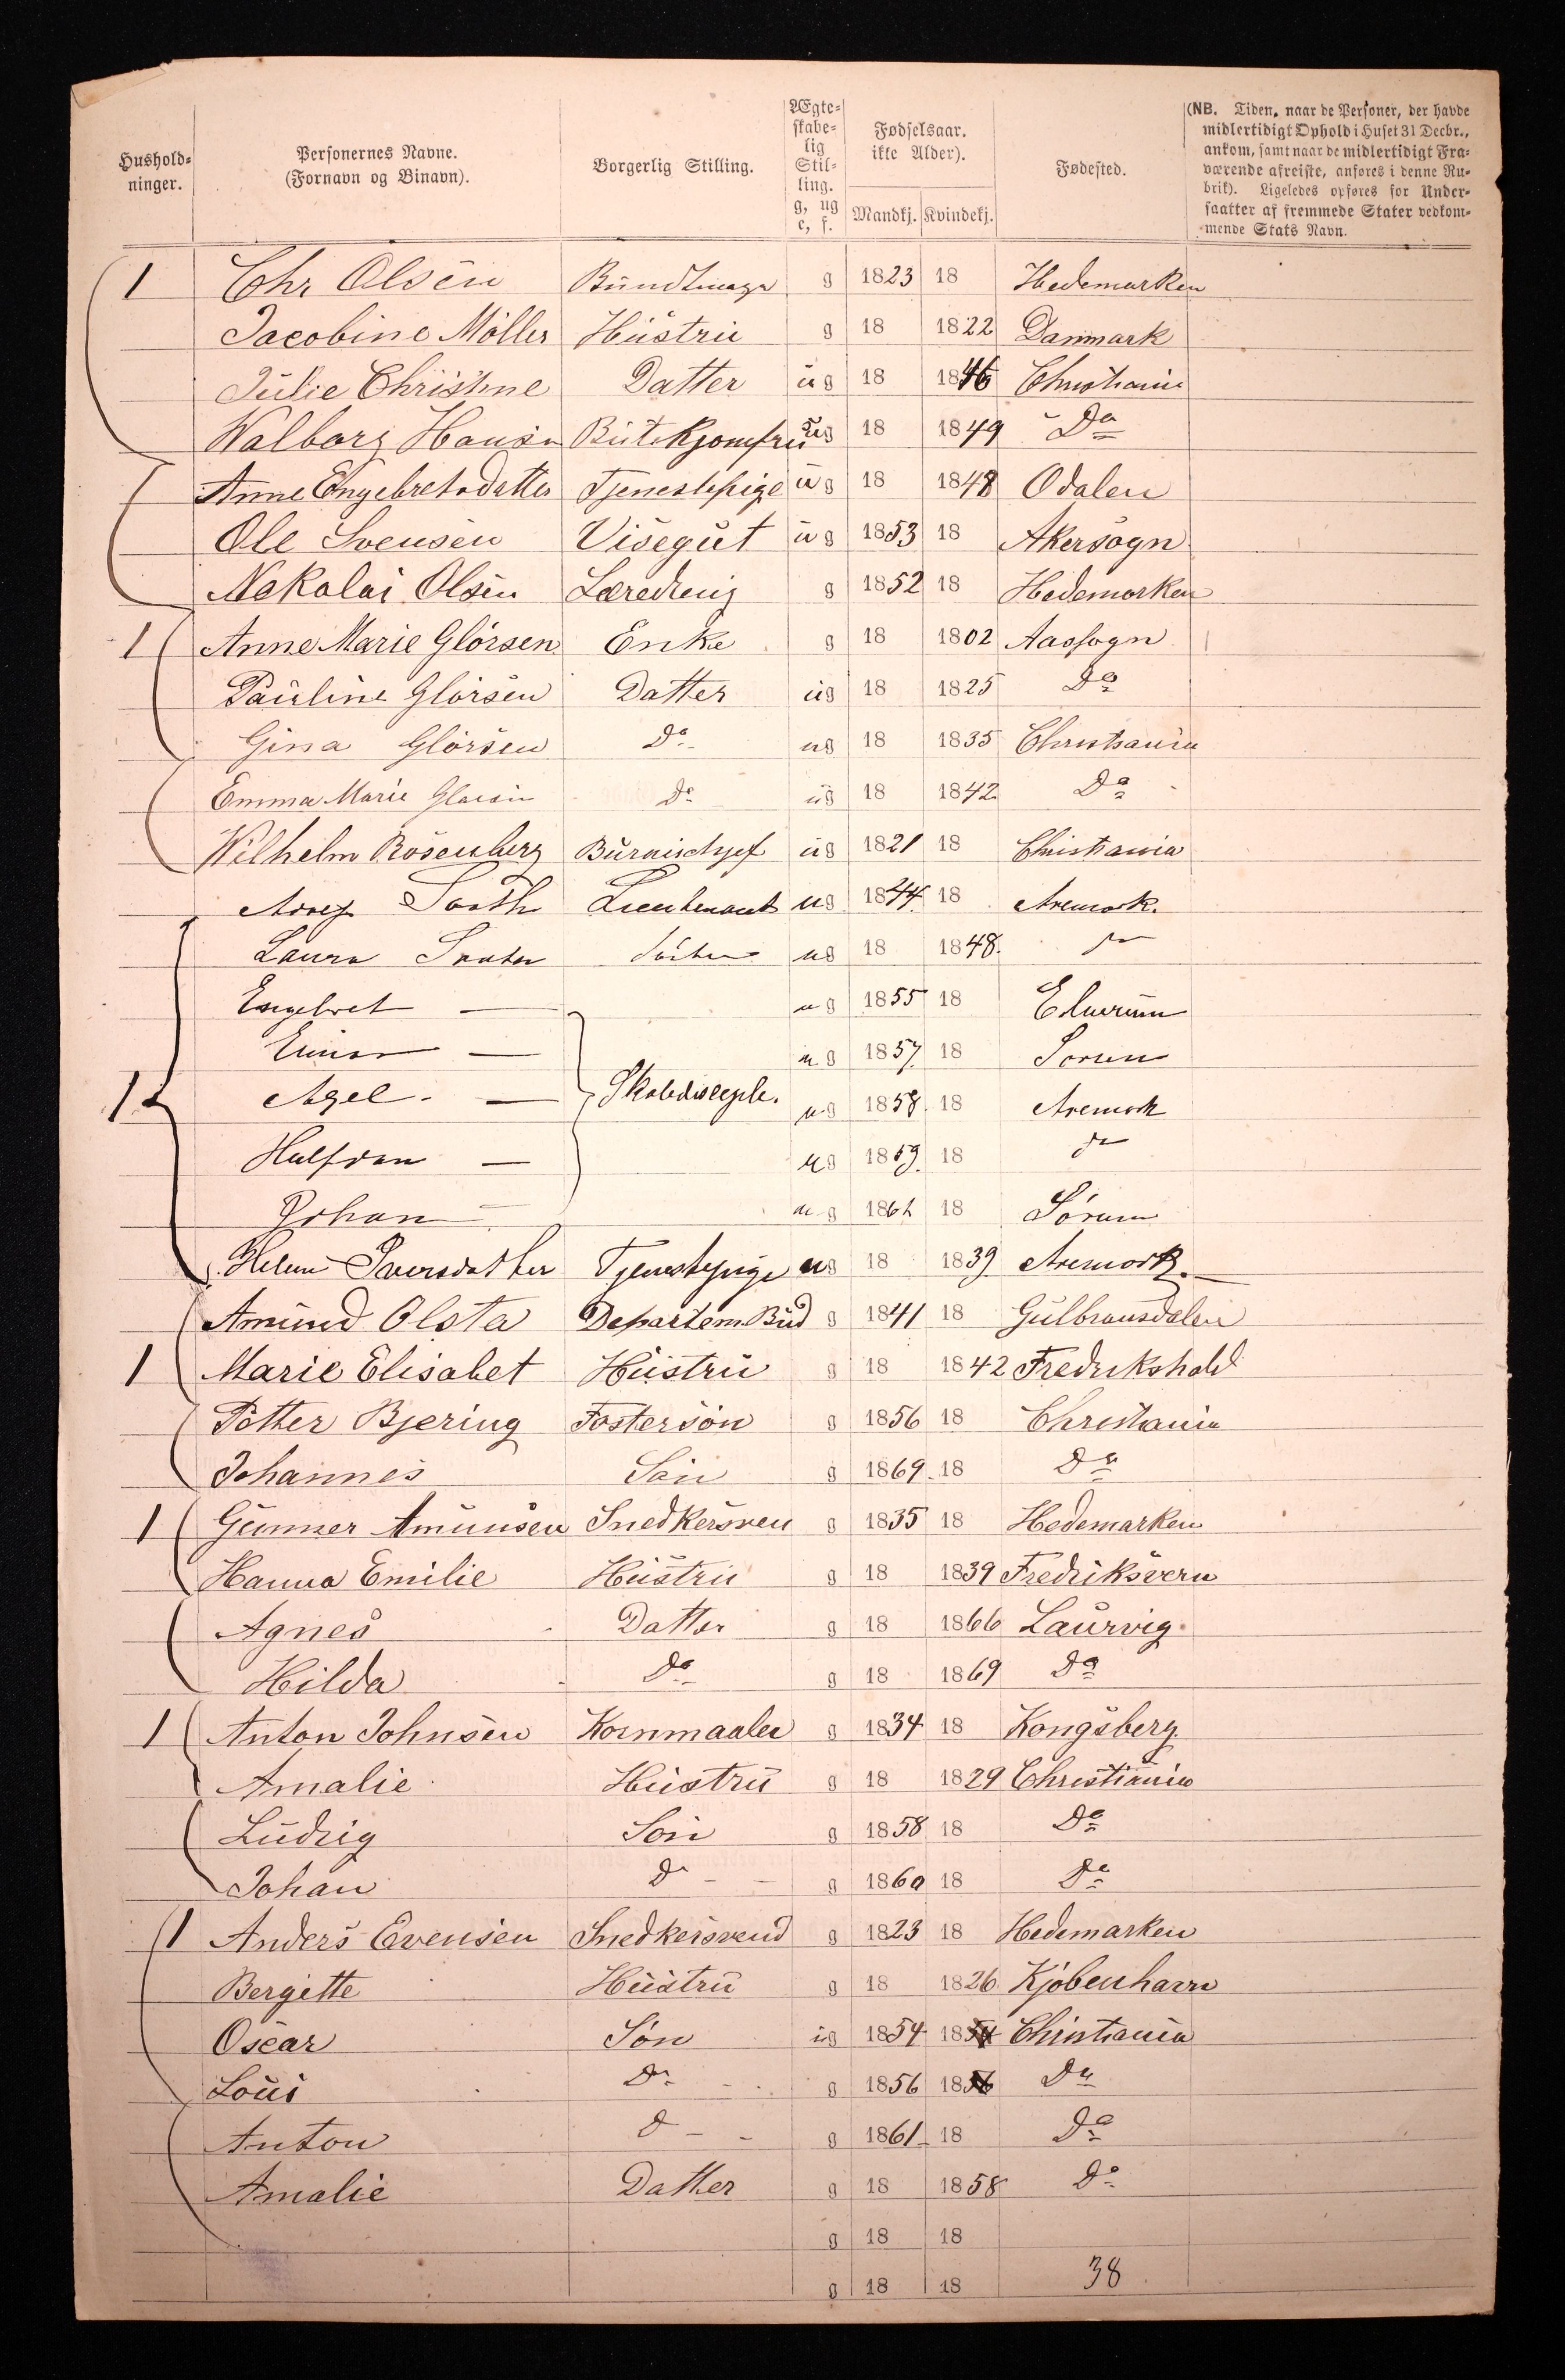 Hushold-
ninger.
Personernes Navne.
(Fornavn og Binavn).
Borgerlig Stilling.
Ægte-
skabe-
lig
Stil-
ling.
g, ug
e, f.
Fødselsaar.
ikke Alder).
Mandkj. Kvindekj.
Fødested.
(NB. Tiden, naar de Personer, der havde
midlertidigt Ophold i Huset 31 Decbr.,
ankom, samt naar de midlertidigt Fra-
værende afreiste, anføres i denne Ru-
brik). Ligeledes opføres for Under-
saatter af fremmede Stater vedkom-
mende Stats Navn.
1 Chr Olsen g 1823 18 Hedemarken
Jacobine Möller Hüstrü g 18 1822 Danmark
Julie Christine Datter üg 18 1846 Christiania
Walborg Hansen Bütikjomfrü üg 18 1849 Do
Anne Engebretsdatter Tjenestepige üg 18 1848 Odalen
Ole Svensen Visegüt üg 1853 18 Akersogn
Nekolai Olsen Læredreng g 1852 18 Hedemarken
1 Anne Marie Glörsen Enke g 18 1802 Aassogn
Paüline Glörsen Datter üg 18 1825 Do
Gina Glörsen Do ug 18 1835 Christiania
Emma Marie Do üg 18 1842 Do
Wilhelm Rosenberg üg 1821 18 Christiania
Lieutenant ug 1844 18 Aremark.
Laura ug 18 1848. do
Engebret — ug 1855 18 Elverüm
Einar — ug 1857. 18
1 Axel. — Skoledisciple. ug 1858. 18 Aremark
Halfdan — ug 1859. 18 do
Johan — ug 1862 18 Sörum
Helene Iversdatter Tjenestepige ug 18 1839 Aremark.
Amünd Olsta Departem. Büd g 1841 18 Gülbransdalen
1 Marie Elisabet Hüstrü g 18 1842 Fredrikshald
Petter Bjering Fostersön g 1856 18 Christiania
Johannes Sön g 1869 18 Do
1 Günner Amünsen Snedkersven g 1835 18 Hedemarken
Hanna Emilie Hüstrü g 18 1839 Fredriksvern
Agnes Datter g 18 1866 Laürvig
Hilda Do g 18 1869 Do
1 Anton Johnsen Kornmaaler g 1834 18 Kongsberg
Amalie Hüstrü g 18 1829 Christiania
Lüdvig Sön g 1858 18 Do
Johan Do g 1860 18 Do
1 Anders Evensen Snedkersvend g 1823 18 Hedemarken
Bergitte Hüstrü g 18 1826 Kjöbenhavn
Oscar Sön üg 1854 1854 Christiania
Loüi Do g 1856 1856 Do
Anton D g 1861 18 Do
Amalie Datter g 18 1858 Do
g 18 18
g 18 18 38